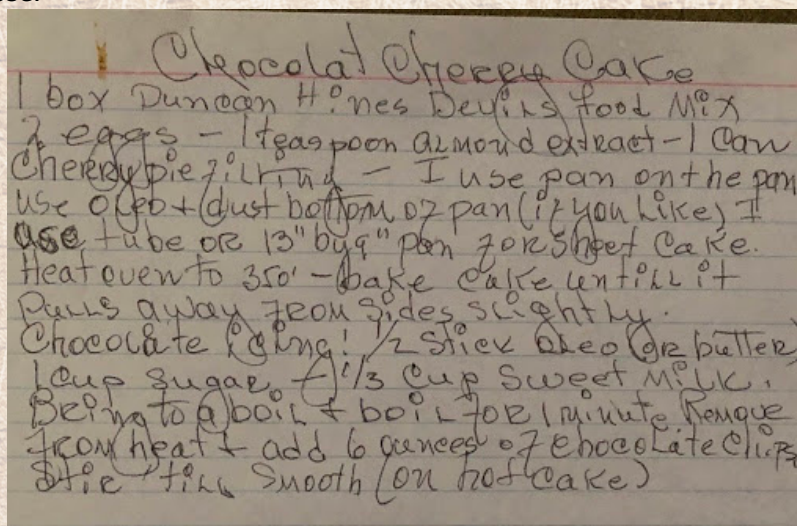 Chocolat Cherry Cake
1 box Duncan Hines Devils food Mix
2 eggs - 1 teaspoon almond extract - 1 can
Cherry pie filling - I use pam on the pan
use oleo + dust bottom of pan (if you like) I
use tube or 13" by 9" pan for sheet cake.
Heat oven to 350' - bake cake untill it
pulls away from sides slightly.
Chocolate icing! 1/2 stick oleo (or butter)
1 cup sugar + 1/3 cup sweet milk.
Bring to a boil + boil for 1 minute Remove
from heat + add 6 ounces of chocolate chips
Stir till smooth (on hot cake)